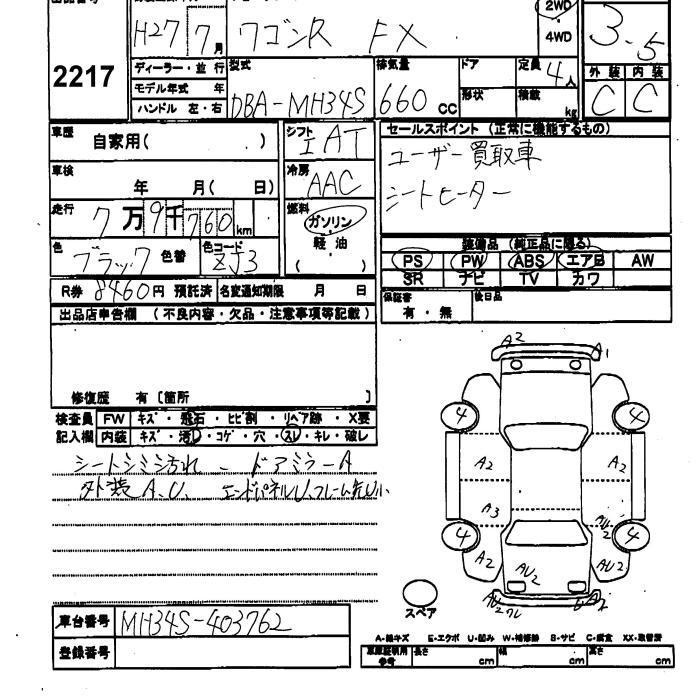 2217
H27 7月 ワゴンR FX
2WD
・
4WD
3.5
ディーラー・並行
モデル年式 年
ハンドル 左・右
型式
DBA-MH34S
排気量
660 CC
ドア
形状
定員
4人
積載
kg
外装 内装
C C
車歴
自家用( )
シフト
I AT
車検
年 月( 日)
冷房
AAC
走行
7万9千760km
燃料
ガソリン
軽油
( )
色
ブラック 色替
色コード
ZJ3
R券 8460円 預託済 名変通知期限 月 日
セールスポイント (正常に機能するもの)
ユーザー買取車
シートヒーター
装備品 (純正品に限る)
PS PW ABS エアB AW
SR ナビ TV カワ
保証書
有・無
後日品
出品店申告欄 (不良内容・欠品・注意事項等記載)
修復歴 有〔箇所 〕
検査員 FW キズ・飛石・ヒビ割・リペア跡・X要
記入欄 内装 キズ・汚レ・コゲ・穴・スレ・キレ・破レ
シートシミシミ汚れ - ドアミラーA
外装A.U.
A2 A1
4 4
A2 A2
A3 AU2
4 4
A2 AU2 AU2
AU2 ワレ A2
スペア
車台番号 MH34S-403762
登録番号
A-線キズ E-エクボ U-凹み W-補修跡 S-サビ C-腐食 XX-取替済
車庫証明用
参考
長さ cm
幅 cm
高さ cm